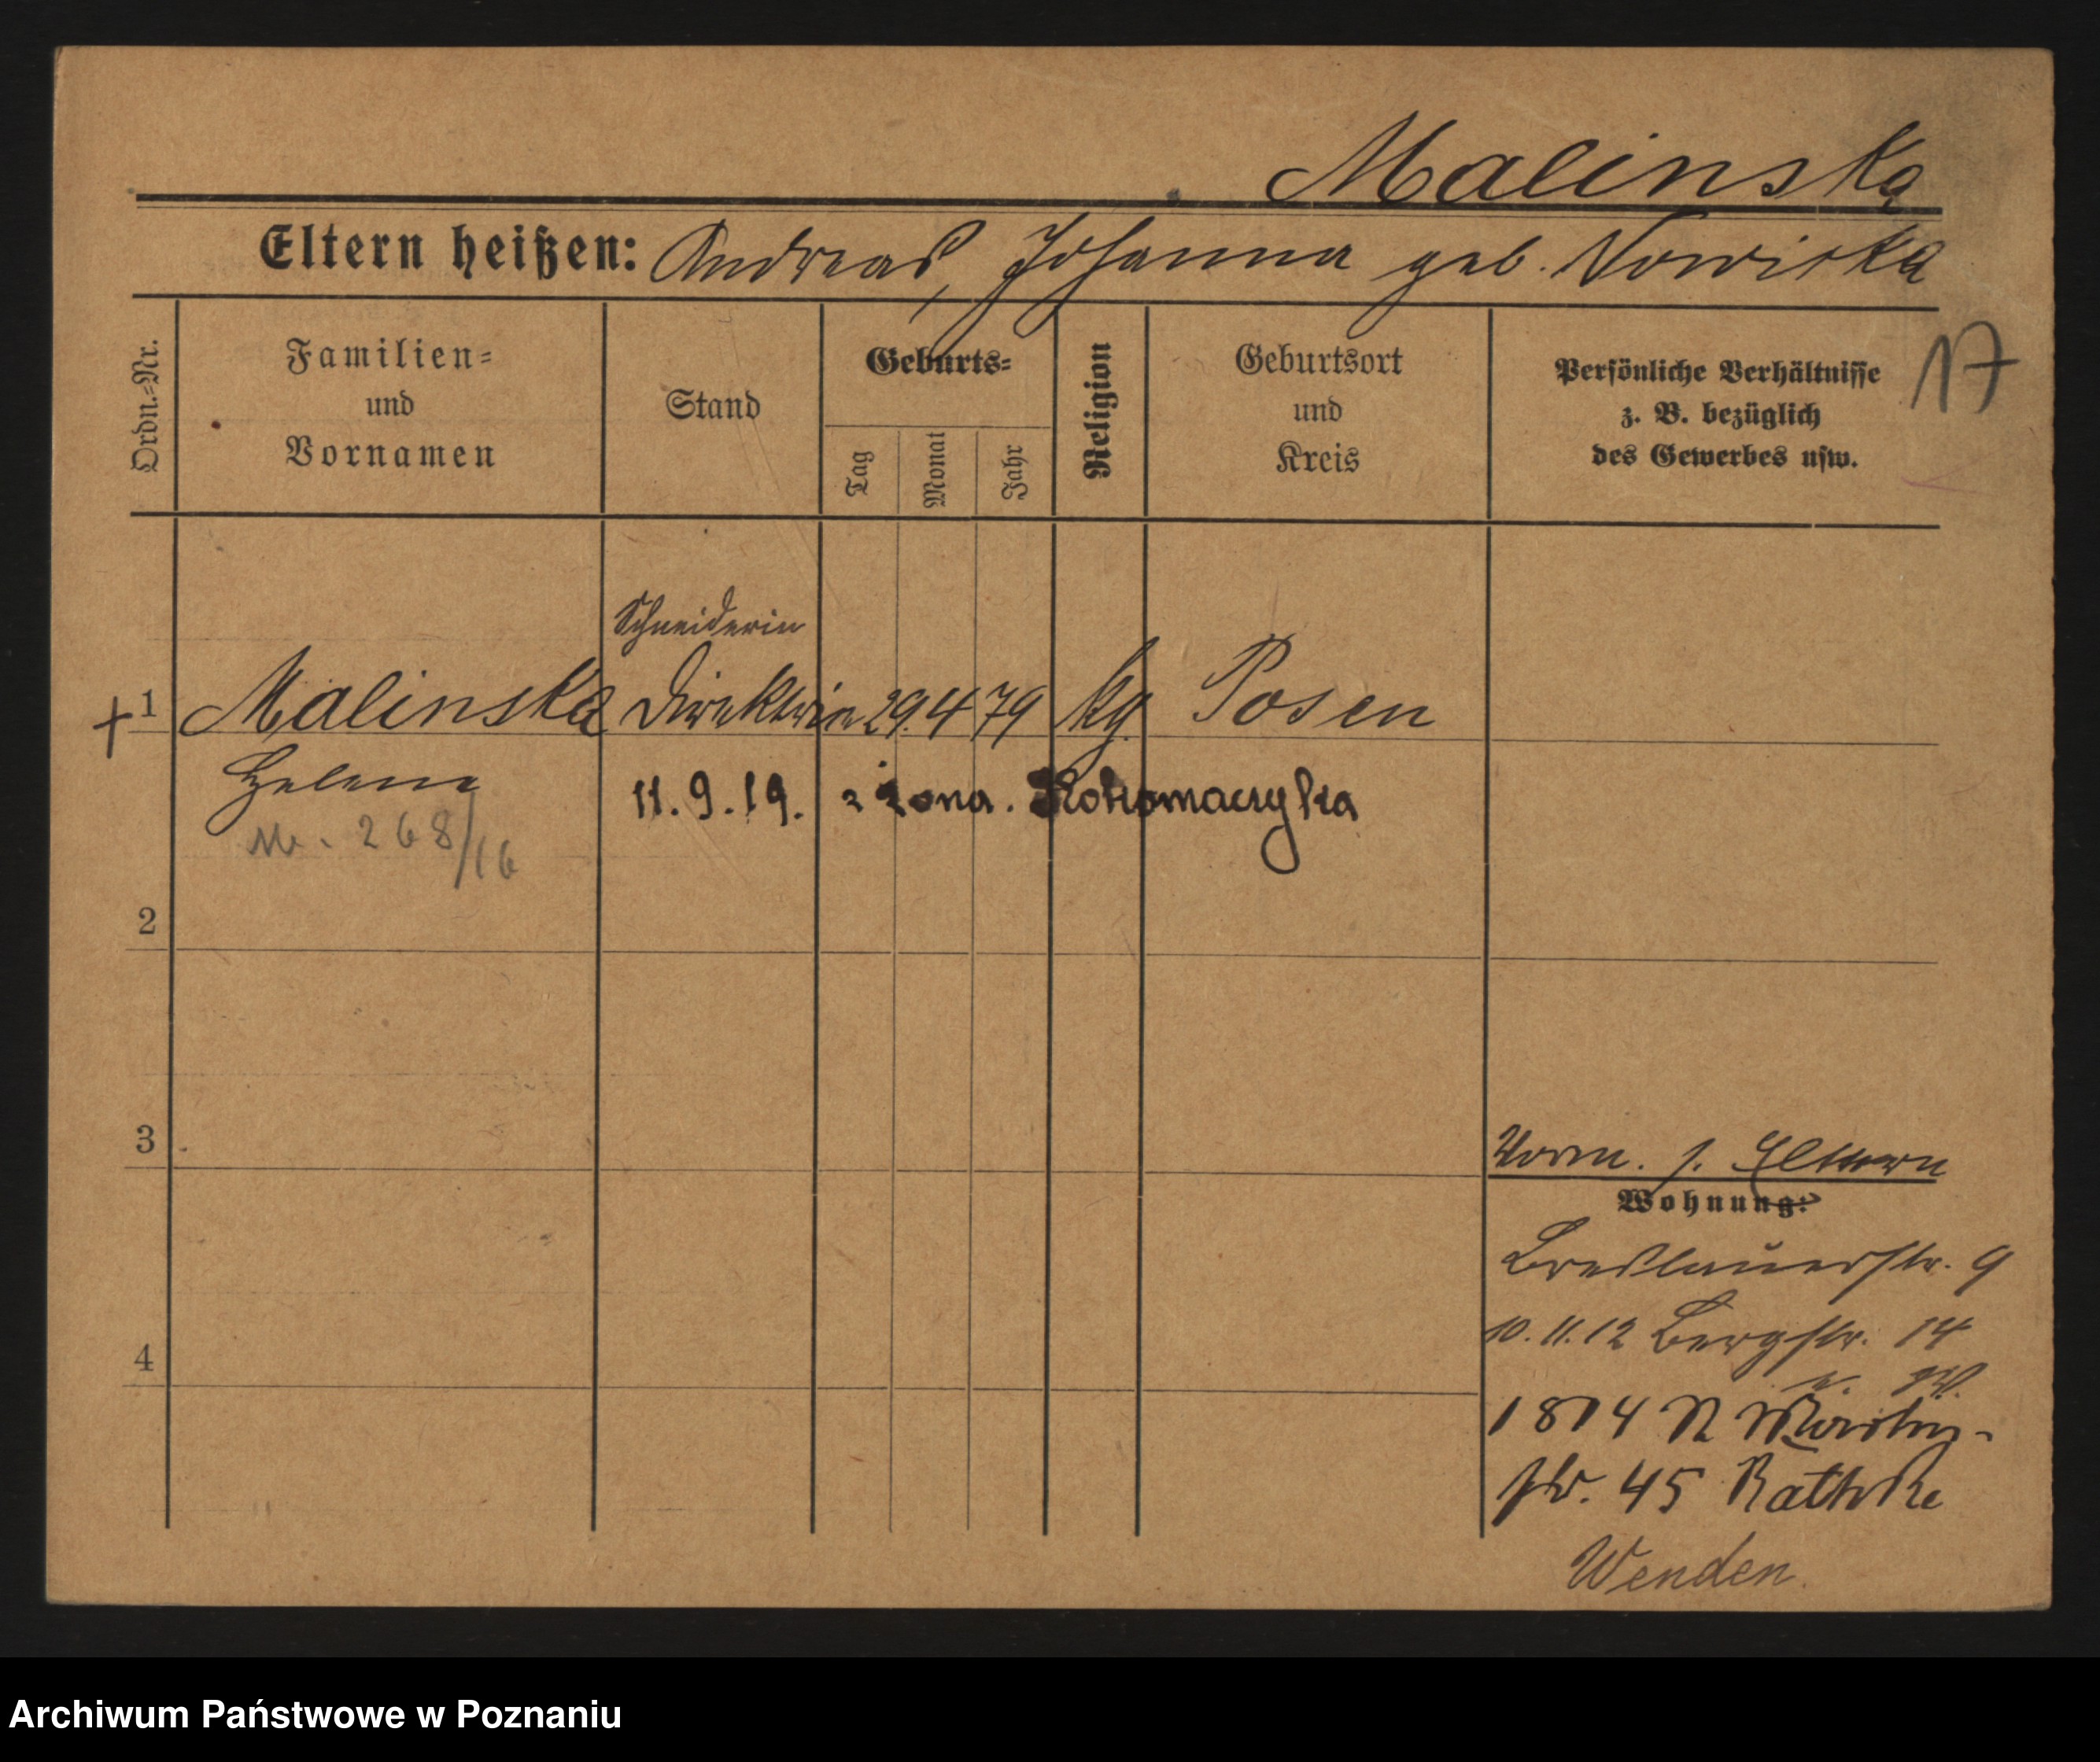 Malinska
Eltern heißen: Andreas, Johanna geb. Nowicka
17
Ordn.-Nr.
Familien-
und
Vornamen
Stand
Geburts-
Tag
Monat
Jahr
Religion
Geburtsort
und
Kreis
Persönliche Verhältnisse
z. B. bezüglich
des Gewerbes usw.
Schneiderin
+ 1 Malinska Direktrin 29. 4 79 kg. Posen
Helene
11. 9. 19. żona.
Nr. 268/16
2
3
4
Vorm. s. Eltern
Wohnung:
Breslauerstr. 9
10. 11. 12 Bergstr. 14
1814 N Martin-
str. 45 Rathke
Wenden.
Archiwum Państwowe w Poznaniu